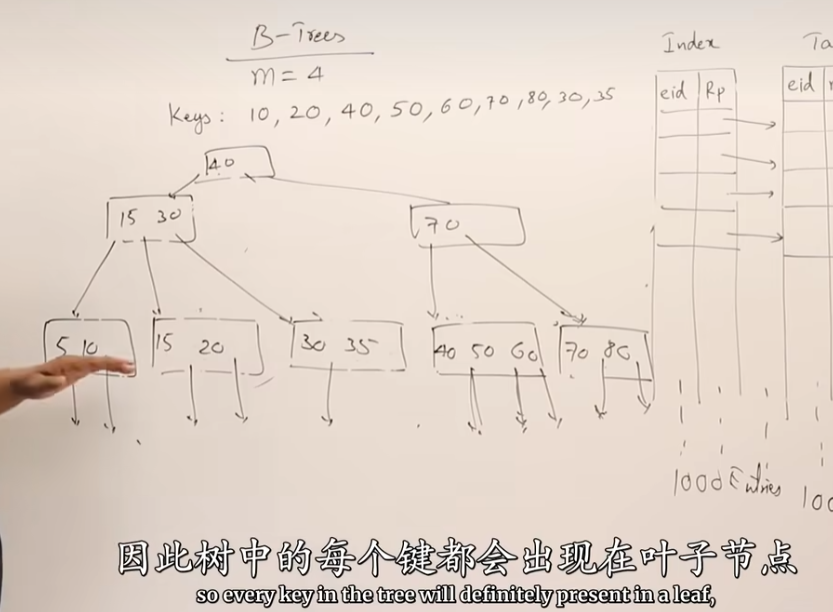 B-Trees
m = 4
Keys: 10, 20, 40, 50, 60, 70, 80, 30, 35
40
15 30
70
5 10
15 20
30 35
40 50 60
70 80
Index
eid Rp
eid
1000 Entries
因此树中的每个键都会出现在叶子节点
so every key in the tree will definitely present in a leaf,